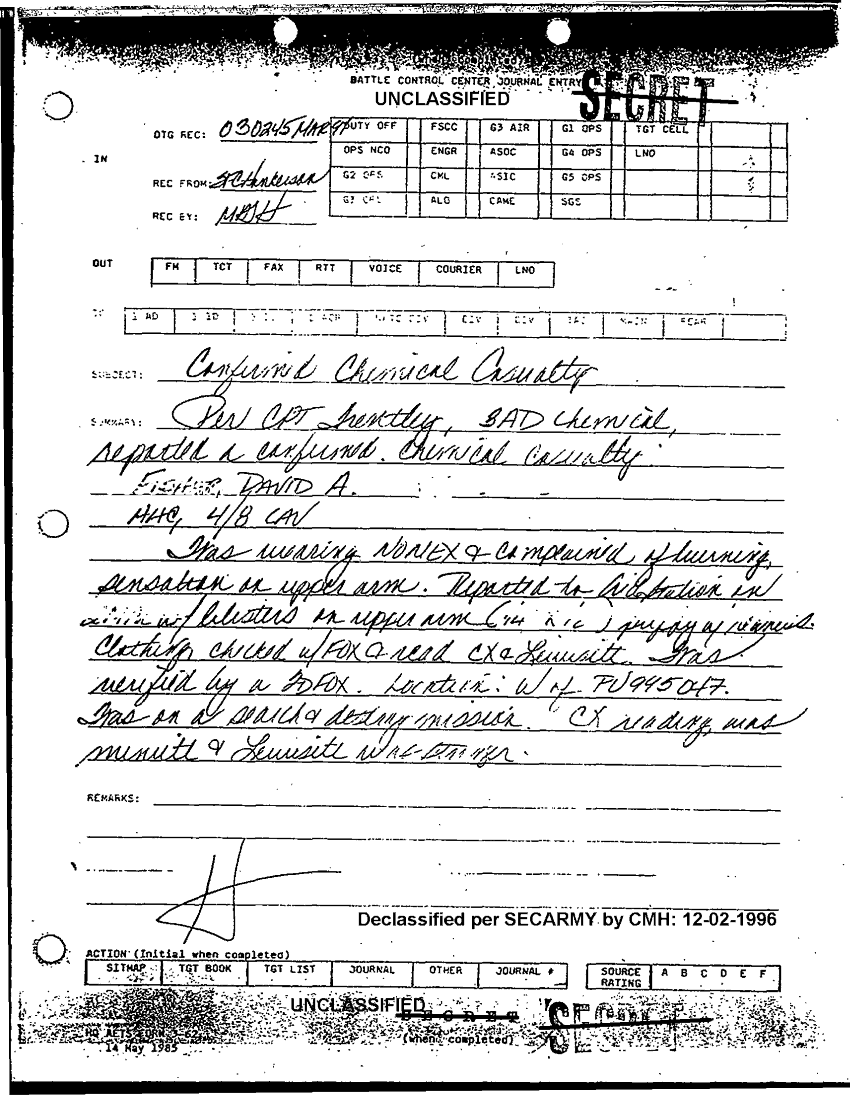 BATTLE CONTROL CENTER JOURNAL ENTRY
UNCLASSIFIED
SECRET
IN
DTG REC: 030245 MAR 97
DUTY OFF FSCC G3 AIR G1 OPS TGT CELL
OPS NCO ENGR ASOC G4 OPS LNO
REC FROM:
G2 OPS CML ASIC G5 OPS
REC BY:
ALO CAME SGS
OUT
FM TCT FAX RTT VOICE COURIER LNO
1 AD MAIN REAR
SUBJECT: Confirmed Chemical Casualty
SUMMARY: Per CPT 3AD Chemical,
reported a confirmed chemical casualty.
FISHER, DAVID A.
HHC, 4/8 CAV
Was wearing NOMEX & complained of burning
sensation on upper arm. Reported to Aid Station in
w/ blisters on upper arm
Clothing checked w/FOX & read CX & Lewisite. Was
verified by a 2D FOX. Location: W of PU945047.
Was on a search & destroy mission. CX reading was
& Lewisite was stronger.
REMARKS:
Declassified per SECARMY by CMH: 12-02-1996
ACTION (Initial when completed)
SITMAP TGT BOOK TGT LIST JOURNAL OTHER JOURNAL # SOURCE RATING A B C D E F
UNCLASSIFIED
SECRET
(when completed)
SECRET
14 May 1985